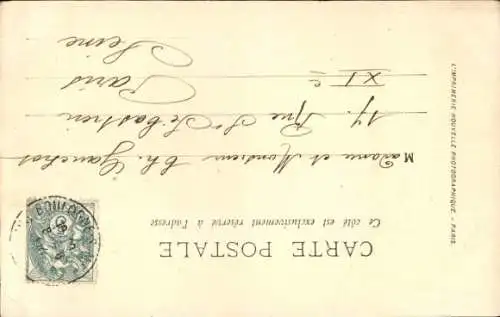 CARTE POSTALE
Ce côté est exclusivement réservé à l'adresse
Madame et Monsieur Ch. Ganchot
17. Rue St Sébastien
XI e
Paris
Seine
L'IMPRIMERIE NOUVELLE PHOTOGRAPHIQUE. - PARIS.